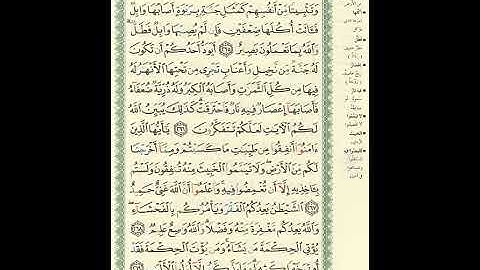 وَتَثْبِيتًا مِّنْ أَنفُسِهِمْ كَمَثَلِ جَنَّةٍۭ بِرَبْوَةٍ أَصَابَهَا وَابِلٌ
فَـَٔاتَتْ أُكُلَهَا ضِعْفَيْنِ فَإِن لَّمْ يُصِبْهَا وَابِلٌ فَطَلٌّ
وَٱللَّهُ بِمَا تَعْمَلُونَ بَصِيرٌ ٢٦٥ أَيَوَدُّ أَحَدُكُمْ أَن تَكُونَ
لَهُۥ جَنَّةٌ مِّن نَّخِيلٍ وَأَعْنَابٍ تَجْرِى مِن تَحْتِهَا ٱلْأَنْهَٰرُ لَهُۥ
فِيهَا مِن كُلِّ ٱلثَّمَرَٰتِ وَأَصَابَهُ ٱلْكِبَرُ وَلَهُۥ ذُرِّيَّةٌ ضُعَفَآءُ
فَأَصَابَهَآ إِعْصَارٌ فِيهِ نَارٌ فَٱحْتَرَقَتْ كَذَٰلِكَ يُبَيِّنُ ٱللَّهُ
لَكُمُ ٱلْءَايَٰتِ لَعَلَّكُمْ تَتَفَكَّرُونَ ٢٦٦ يَٰٓأَيُّهَا ٱلَّذِينَ
ءَامَنُوٓا۟ أَنفِقُوا۟ مِن طَيِّبَٰتِ مَا كَسَبْتُمْ وَمِمَّآ أَخْرَجْنَا
لَكُم مِّنَ ٱلْأَرْضِ وَلَا تَيَمَّمُوا۟ ٱلْخَبِيثَ مِنْهُ تُنفِقُونَ وَلَسْتُم
بِـَٔاخِذِيهِ إِلَّآ أَن تُغْمِضُوا۟ فِيهِ وَٱعْلَمُوٓا۟ أَنَّ ٱللَّهَ غَنِىٌّ حَمِيدٌ
٢٦٧ ٱلشَّيْطَٰنُ يَعِدُكُمُ ٱلْفَقْرَ وَيَأْمُرُكُم بِٱلْفَحْشَآءِ
وَٱللَّهُ يَعِدُكُم مَّغْفِرَةً مِّنْهُ وَفَضْلًا وَٱللَّهُ وَٰسِعٌ عَلِيمٌ ٢٦٨
يُؤْتِى ٱلْحِكْمَةَ مَن يَشَآءُ وَمَن يُؤْتَ ٱلْحِكْمَةَ فَقَدْ